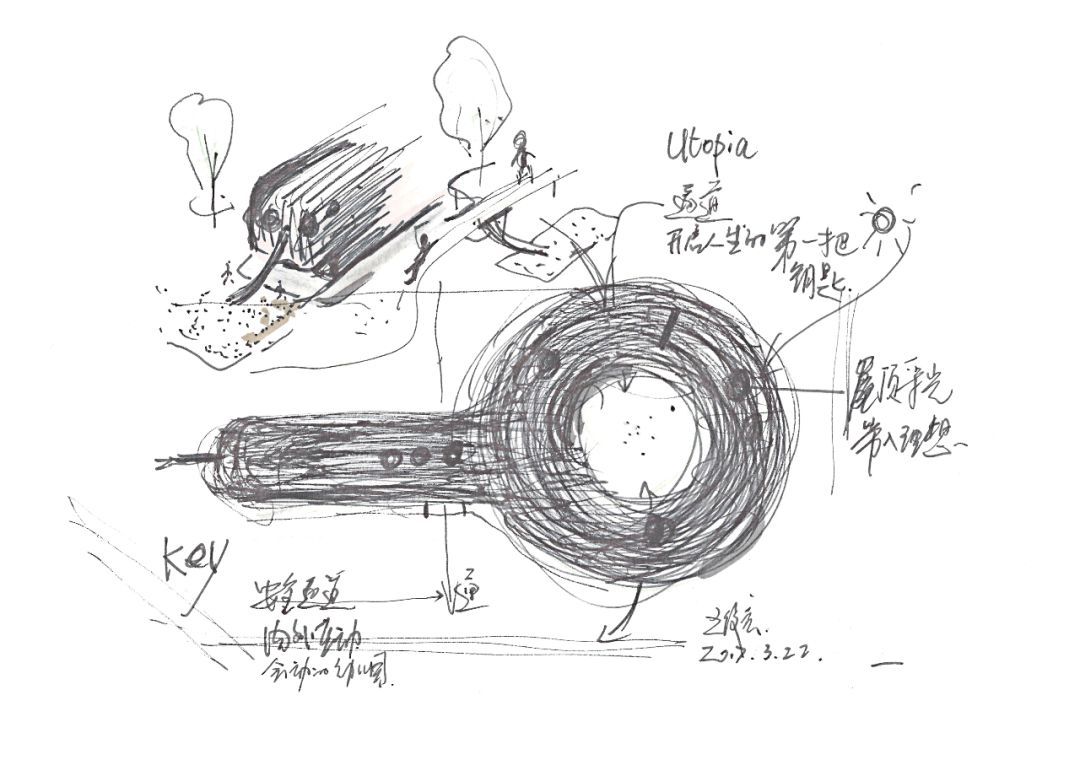 Utopia
通道
开启人生的第一把
钥匙.
屋顶采光
带入理想
key
安全通道
通
内外互动
会动的幼儿园.
2017.3.22.